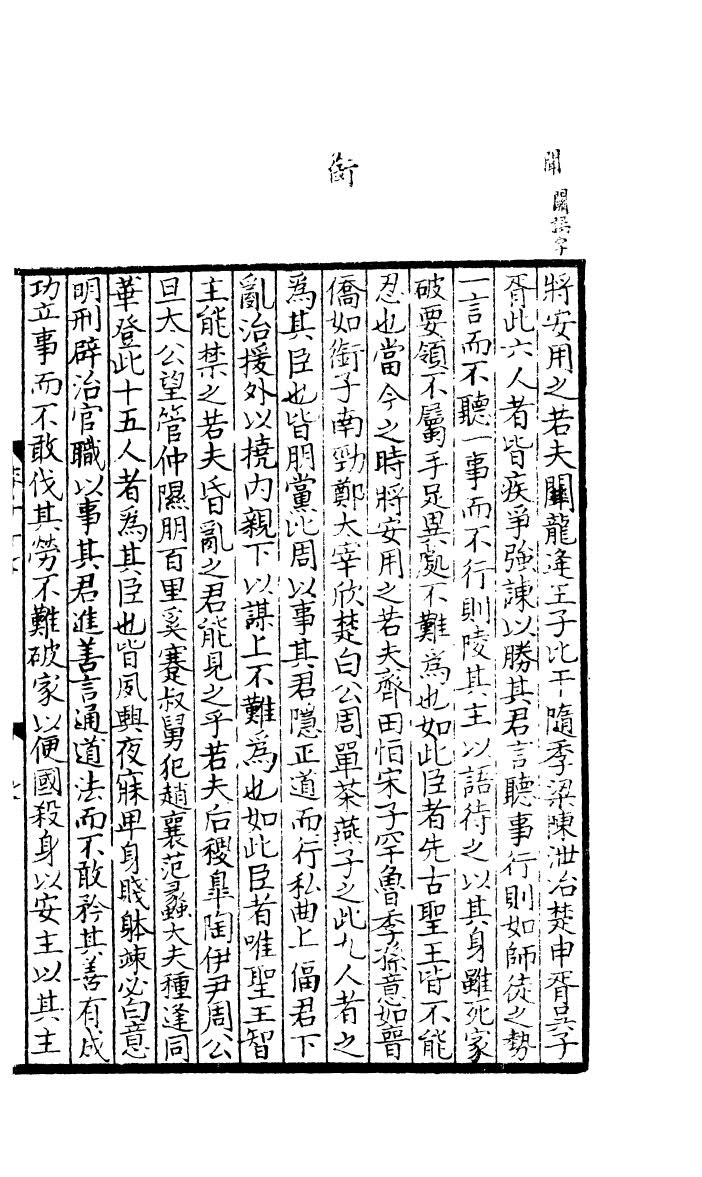 聞 關諼字
銜
將安用之若夫關龍逢王子比干隨季梁陳泄冶楚申胥吳子
胥此六人者皆疾爭強諫以勝其君言聽事行則如師徒之勢
一言而不聽一事而不行則陵其主以語待之以其身雖死家
破要領不屬手足異處不難為也如此臣者先古聖王皆不能
忍也當今之時將安用之若夫齊田恒宋子罕魯季孫意如晉
僑如銜子南勁鄭太宰欣楚白公周單荼燕子之此九人者之
為其臣也皆朋黨比周以事其君隱正道而行私曲上偪君下
亂治援外以撓內親下以謀上不難為也如此臣者唯聖王智
主能禁之若夫昏亂之君能見之乎若夫后稷臯陶伊尹周公
旦大公望管仲隰朋百里奚蹇叔舅犯趙襄范蠡大夫種逢同
華登此十五人者為其臣也皆夙興夜寐甲身賤躰竦必白意
明刑辟治官職以事其君進善言通道法而不敢矜其善有成
功立事而不敢伐其勞不難破家以便國殺身以安主以其主